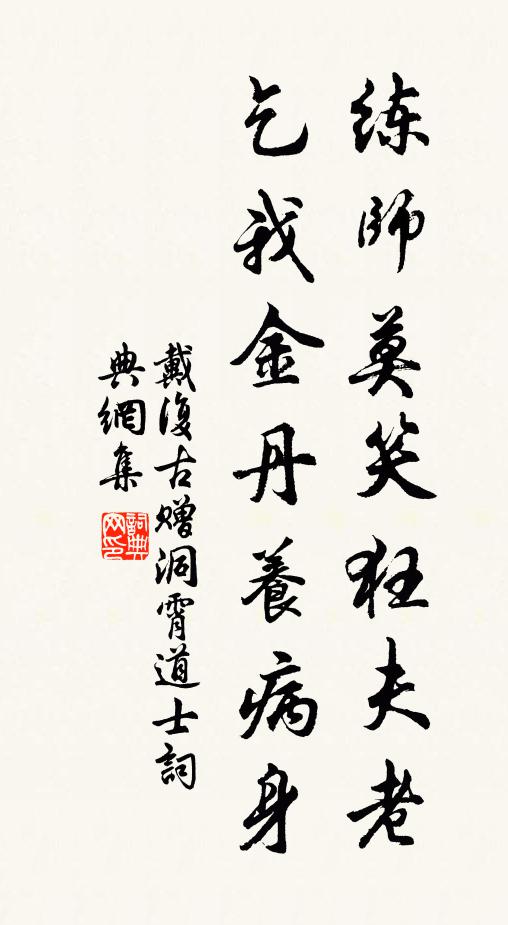 练師莫笑狂夫老
乞我金丹養病身
戴復古贈洞霄道士詞
典網集
詞典
网印